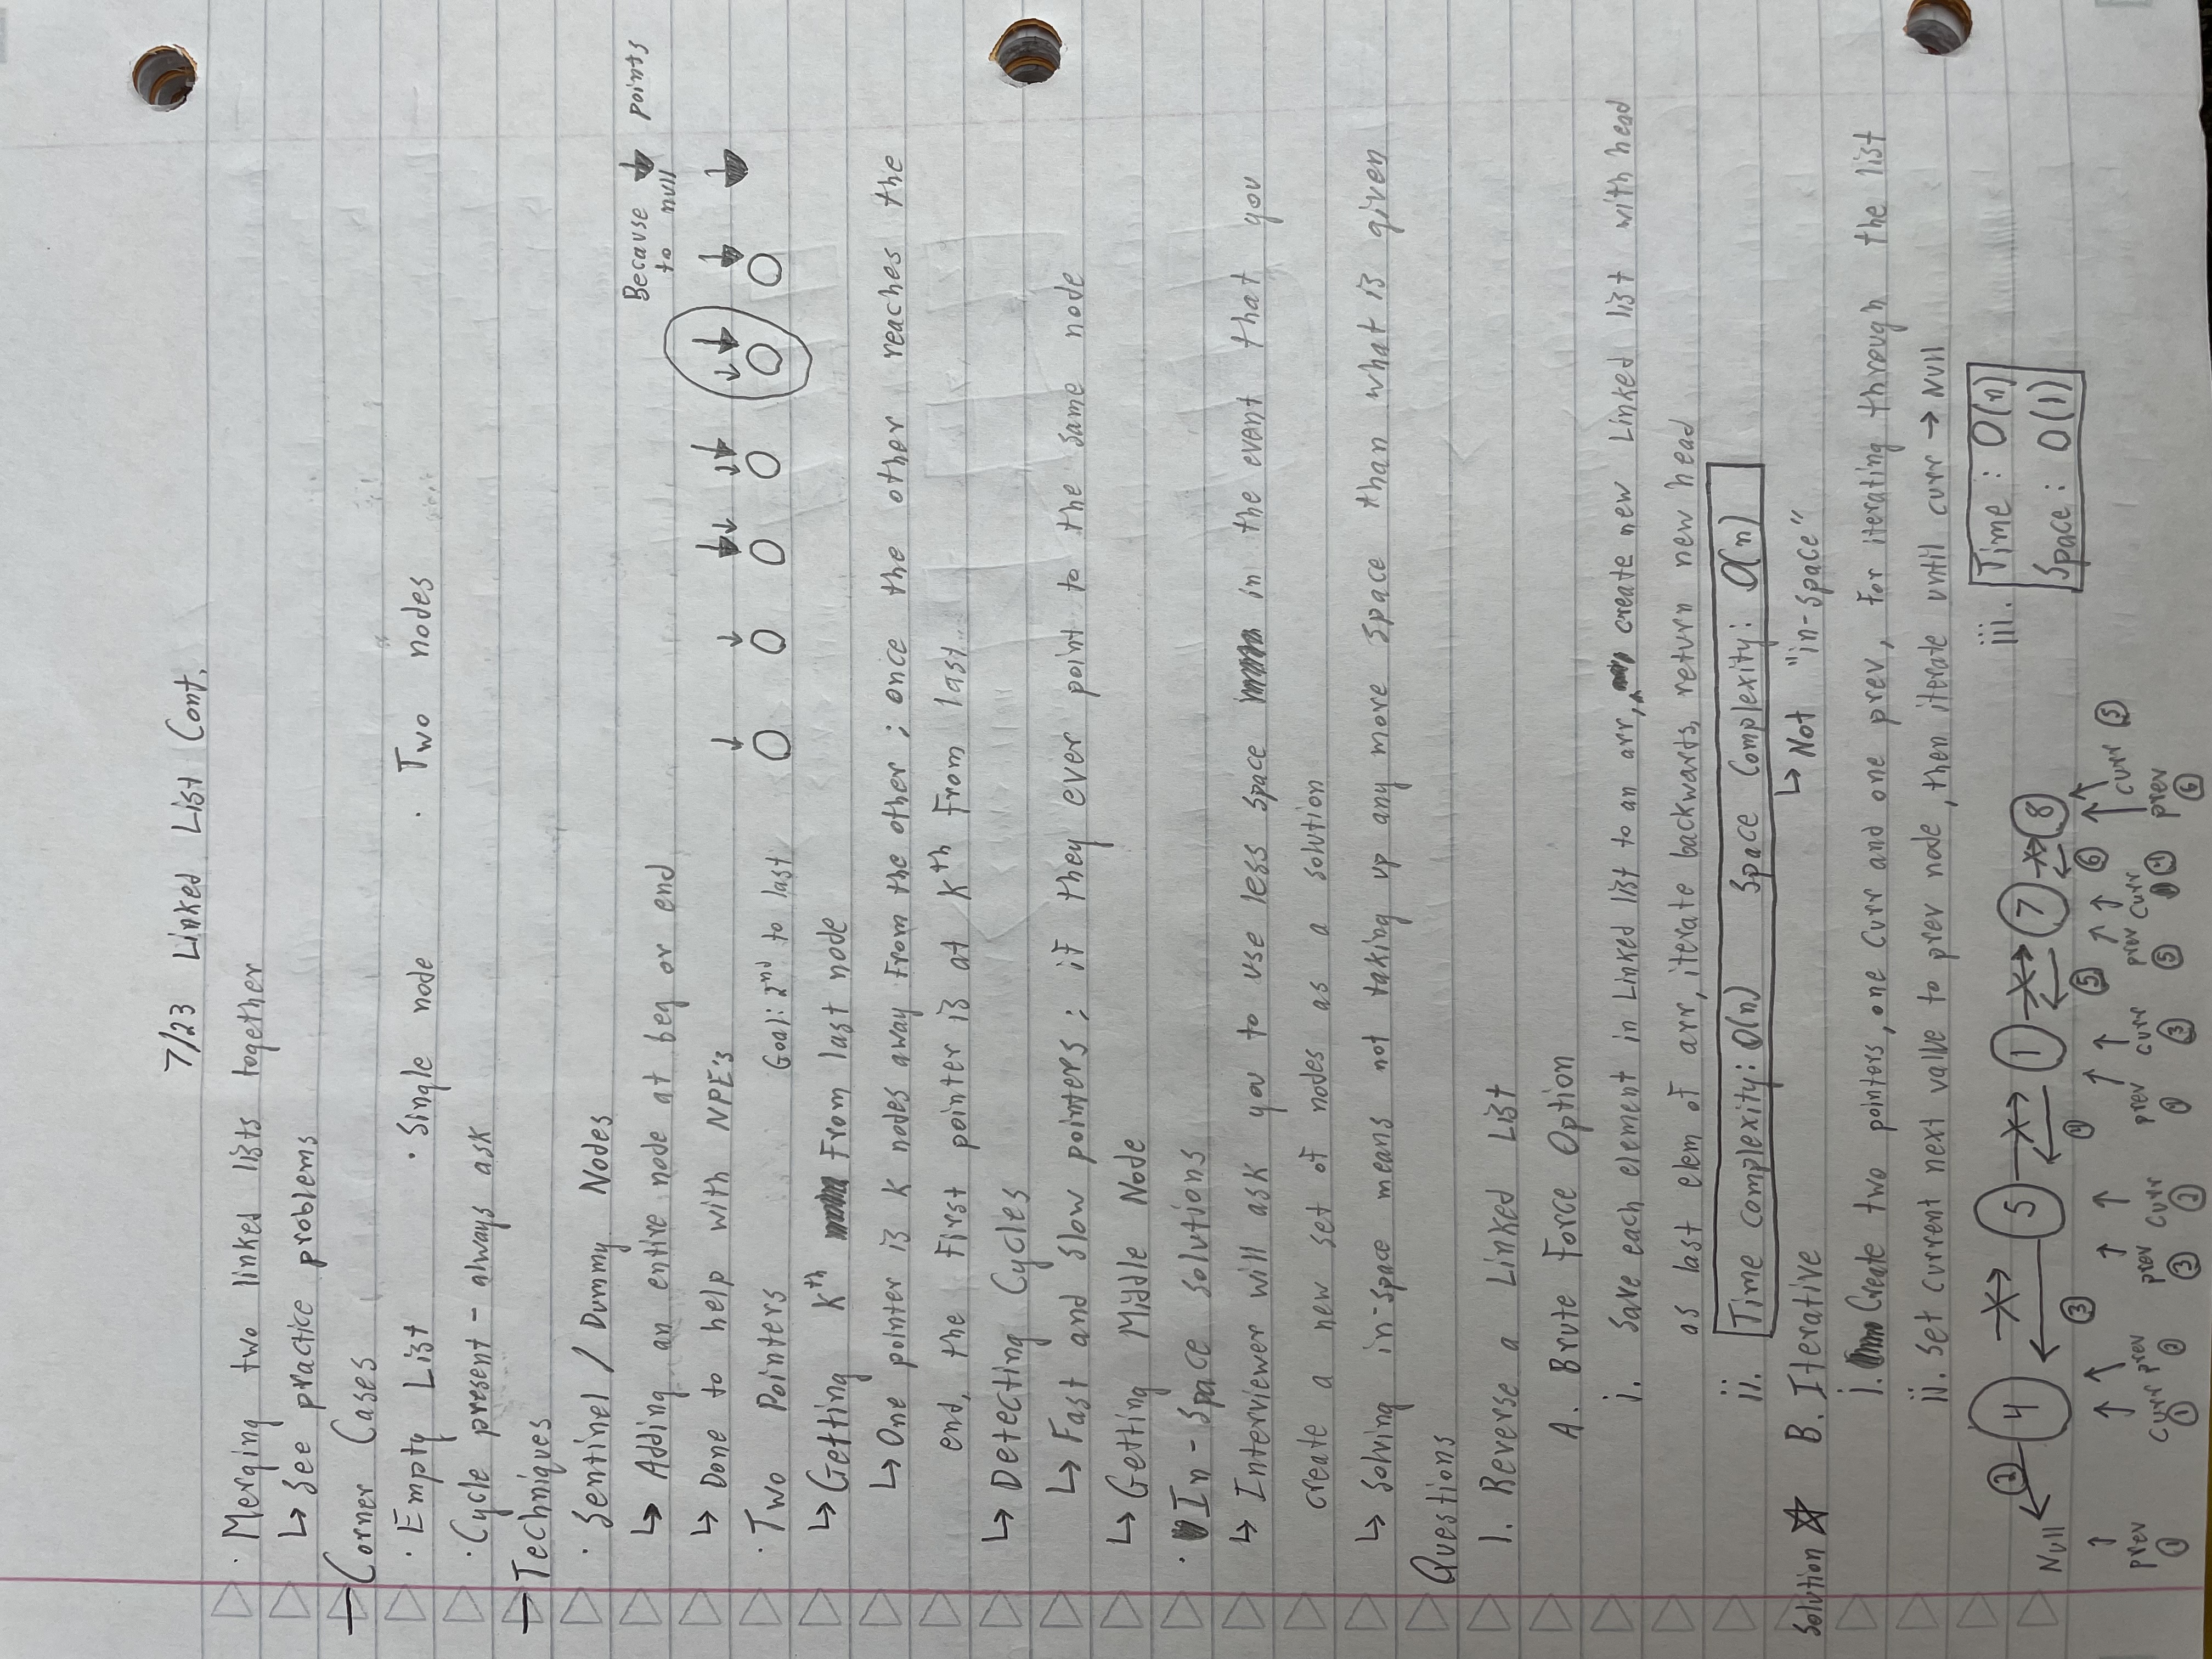 7/23 Linked List Cont.
· Merging two linked lists together
↳ See practice problems
Corner Cases
· Empty List · Single node · Two nodes
· Cycle present - always ask
Techniques
· Sentinel / Dummy Nodes
Because ↓ points
to null
↳ Adding an entire node at beg or end
↳ Done to help with NPE's
· Two Pointers Goal: 2nd to last
↳ Getting Kth from last node
↳ One pointer is K nodes away from the other; once the other reaches the
end, the first pointer is at Kth from last
↳ Detecting Cycles
↳ Fast and slow pointers; if they ever point to the same node
↳ Getting Middle Node
· In-Space Solutions
↳ Interviewer will ask you to use less space in the event that you
create a new set of nodes as a solution
↳ Solving in-space means not taking up any more space than what is given
Questions
1. Reverse a Linked List
A. Brute Force Option
i. Save each element in Linked list to an arr, create new Linked list with head
as last elem of arr, iterate backwards, return new head
ii. Time complexity: O(n) Space Complexity: O(n)
↳ Not "in-space"
Solution ☆ B. Iterative
i. Create two pointers, one curr and one prev, for iterating through the list
ii. Set current next value to prev node, then iterate until curr → Null
iii. Time: O(n)
Space: O(1)
② 4 5 1 7 8
Null
③ ④ ⑤ ⑥
prev ① curr ① prev ② prev ③ curr ② prev ④ curr ③ prev ⑤ curr ④ prev ⑥ curr ⑤